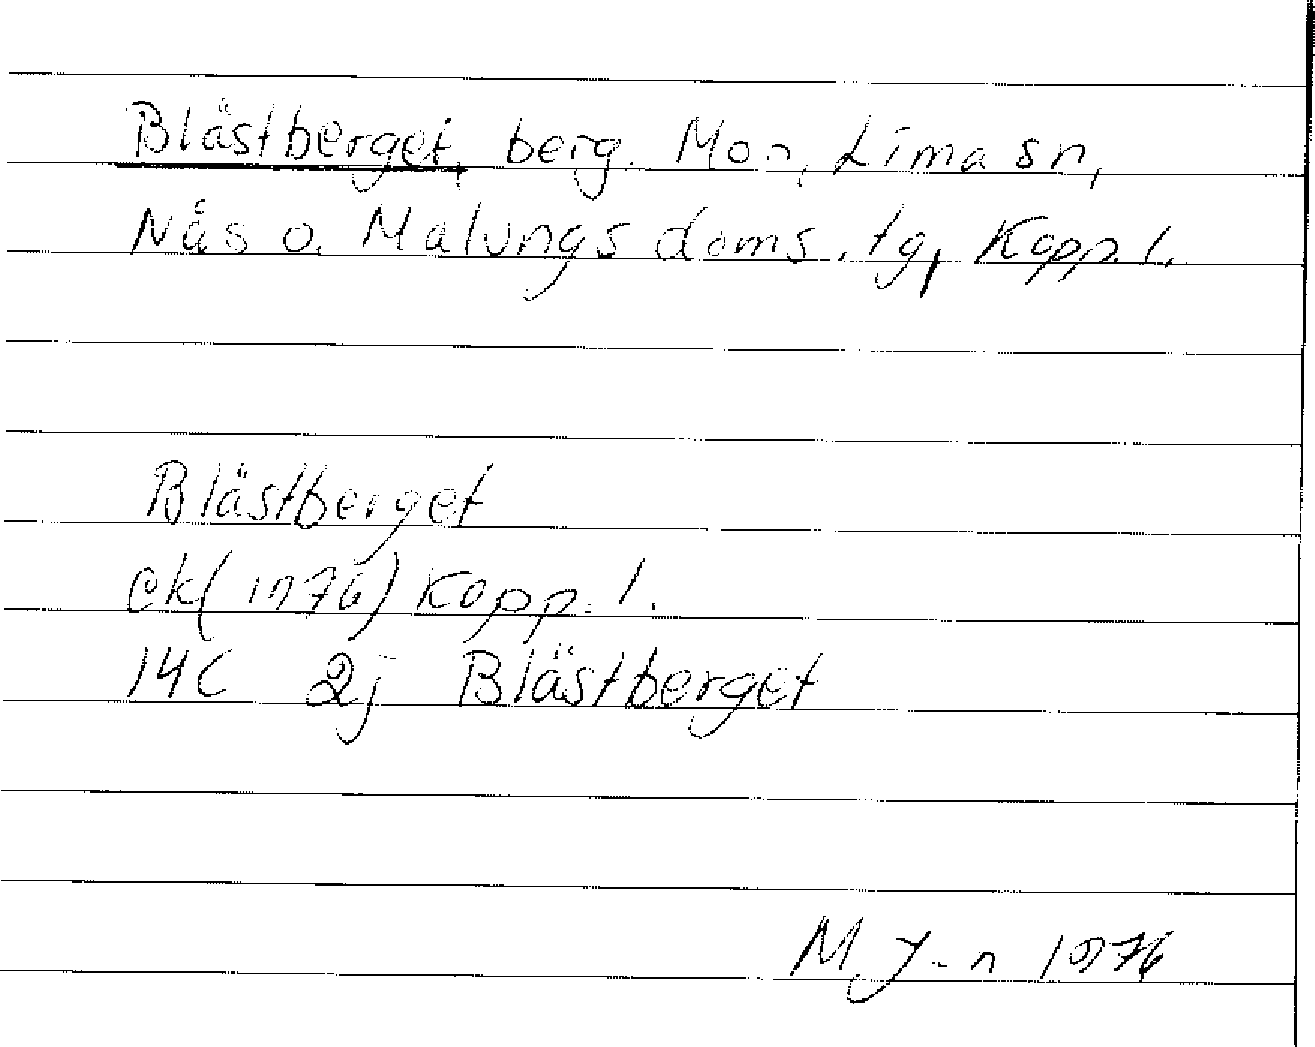 Blästberget, berg. Mon, Lima sn,
Nås o. Malungs doms. tg, Kopp. l.
Blästberget
ek(1976) Kopp. l.
14C 2j Blästberget
M. J-n 1976